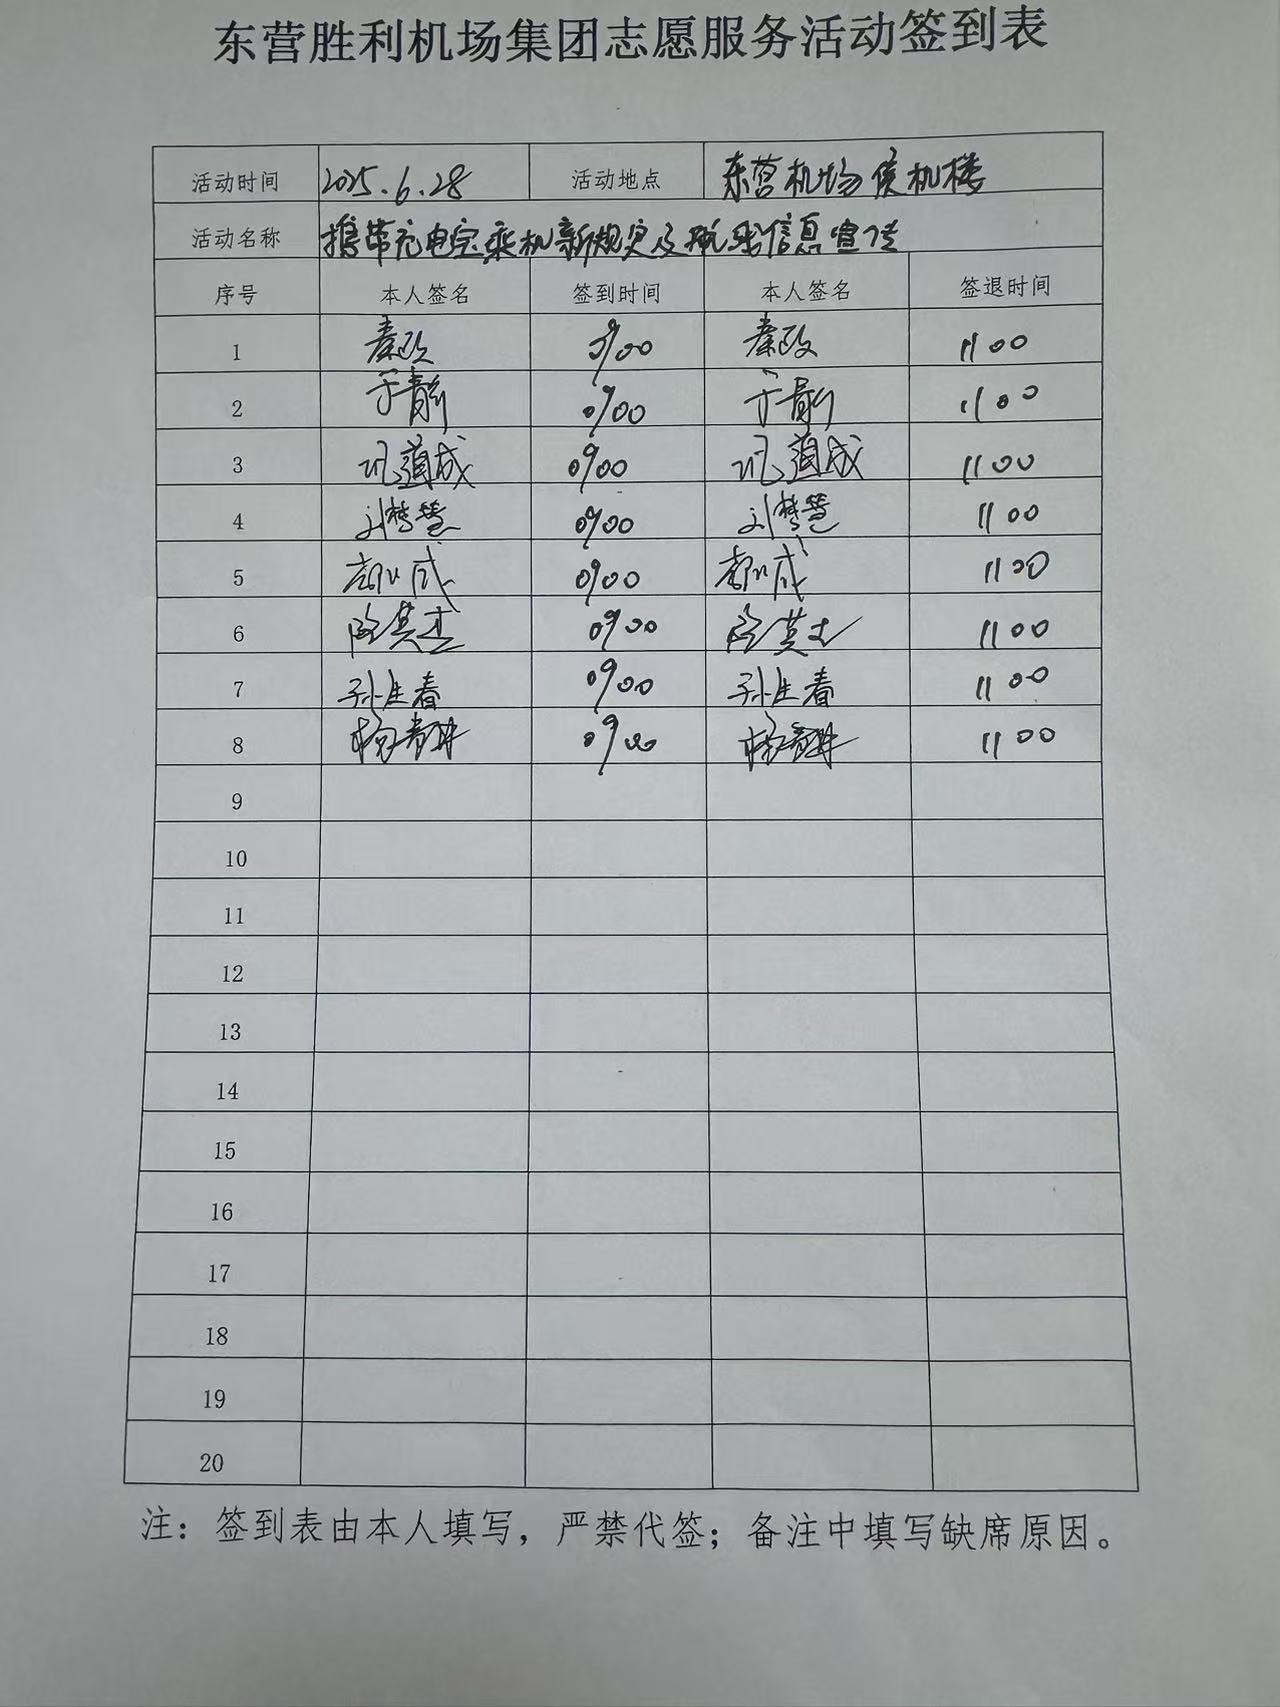 东营胜利机场集团志愿服务活动签到表
活动时间 2025.6.28 活动地点 东营机场侯机楼
活动名称 携带充电宝乘机新规定及航班信息宣传
序号 本人签名 签到时间 本人签名 签退时间
1 秦政 0900 秦政 1100
2 于青新 0900 于青新 1100
3 道成 0900 道成 1100
4 刘梦慧 0900 刘梦慧 1100
5 成 0900 成 1100
6 英杰 0900 英杰 1100
7 孙生春 0900 孙生春 1100
8 杨 0900 杨 1100
9
10
11
12
13
14
15
16
17
18
19
20
注：签到表由本人填写，严禁代签；备注中填写缺席原因。